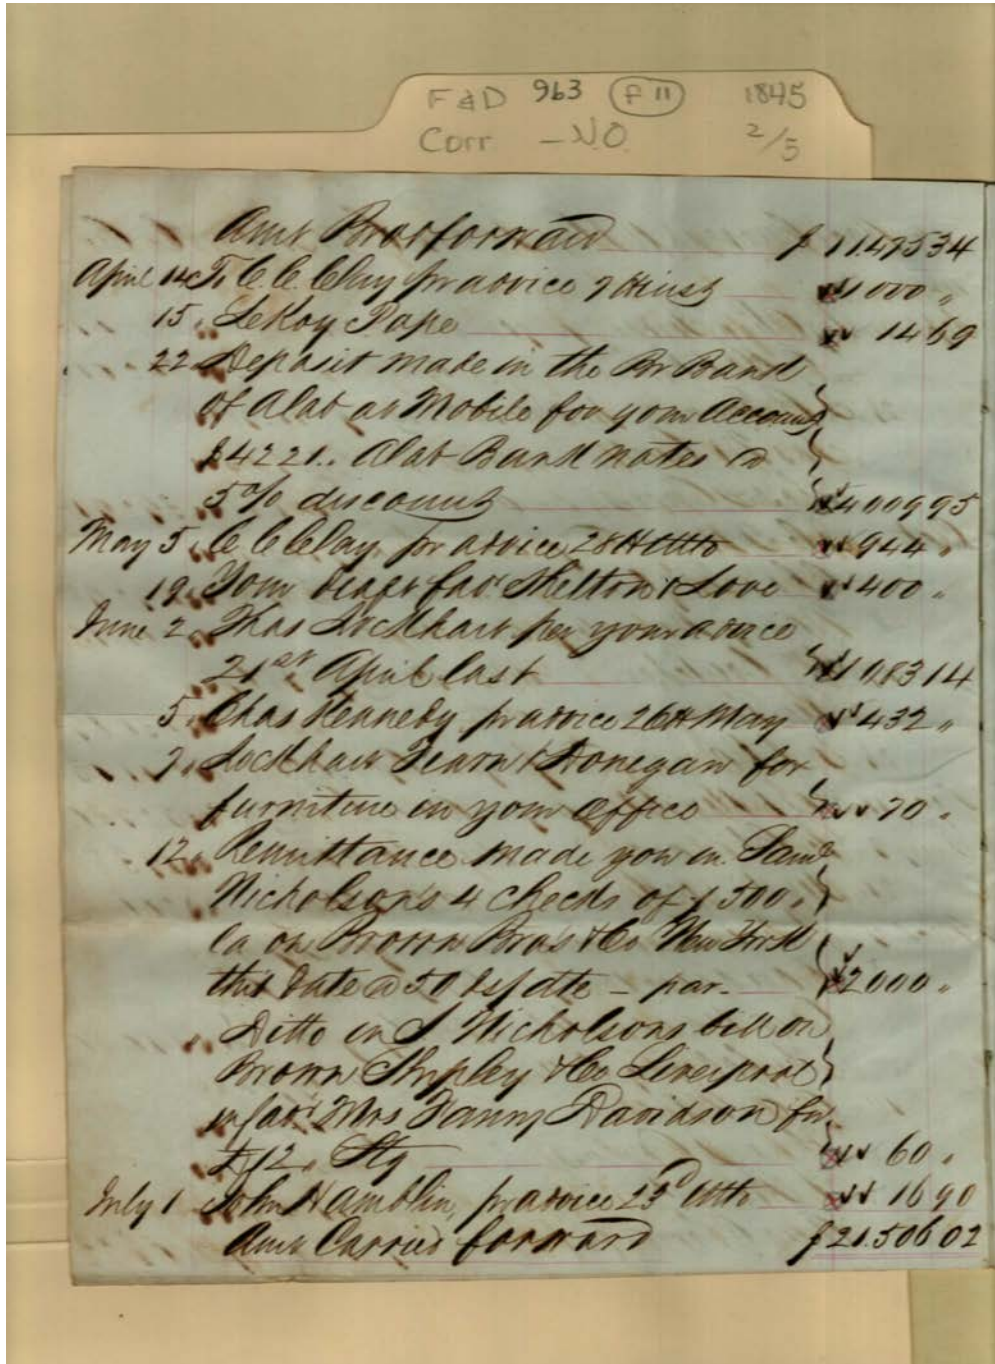 F&D 963 (F 11) 1845
Corr - NO. 2/5
Amt Brot forward $ 11.475 34
April 14 To C. C. Clay pr advice 7th inst 1000 "
15 " LeRoy Pope 14 69
22 " Deposit made in the Br Bank
of Alab at Mobile for your Account
$4221.. Alab Bank notes @
5 % discount 4009 95
May 5 " C C Clay pr advice 28th Ulto 944 "
19 " Your draft fav: Shelton & Love 400 "
June 2 " Thos Lockhart per your advice
21st April last 1083 14
5 " Chas Kennedy pr advice 26th May 432 "
7 " Lockhart Fearn & Donegan for
furniture in your Office 70 "
12 " Remittance made you in Saml
Nicholson's 4 checks of $500 "
Ea on Brown Bros & Co New York
this date @ 50 ds/dte - par. 2000 "
" Ditto in S Nicholsons bill on
Brown Shipley & Co Liverpool
in fav: Mrs Fanny Davidson for
£12 " Stg 60 "
July 1 " John Hamblin, pr advice 23d Ulto 16 90
Amt Carried forward $21.506 02